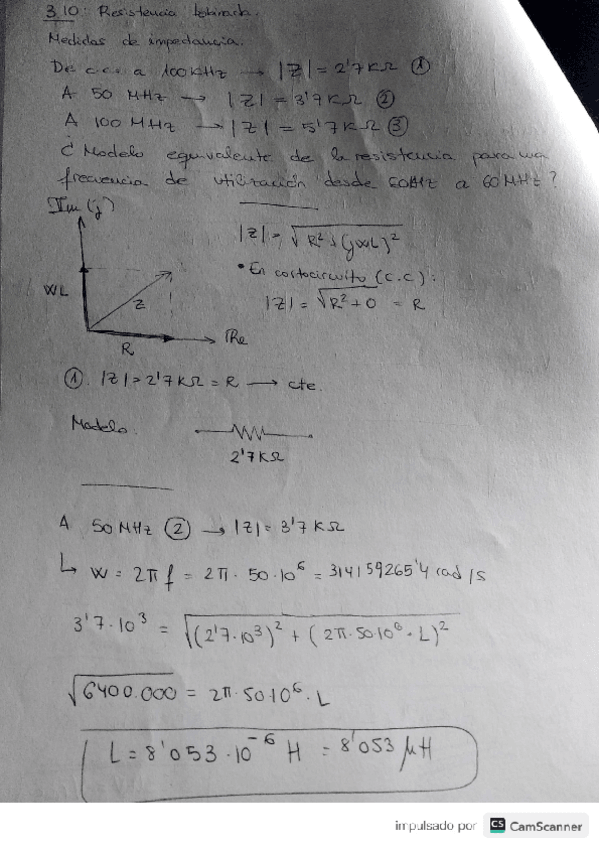 3.10: Resistencia bobinada.
Medidas de impedancia.
De c.c. a 100KHz → |Z| = 2'7KΩ ①
A 50 MHz → |Z| = 3'7KΩ ②
A 100 MHz → |Z| = 5'7KΩ ③
¿ Modelo equivalente de la resistencia para una
frecuencia de utilización desde 60Hz a 60MHz?
Im(j)
WL
Z
R
Re
|Z| = √R²+(jWL)²
• En cortocircuito (c.c):
|Z| = √R²+0 = R
①. |Z| = 2'7KΩ = R → cte.
Modelo:
2'7KΩ
A 50MHz ② → |Z| = 3'7KΩ
↳ W = 2π f = 2π· 50·10⁶ = 314159265'4 rad/s
3'7·10³ = √(2'7·10³)² + (2π·50·10⁶·L)²
√6400.000 = 2π·5010⁶·L
L = 8'053·10⁻⁶ H = 8'053 μH
impulsado por CS CamScanner